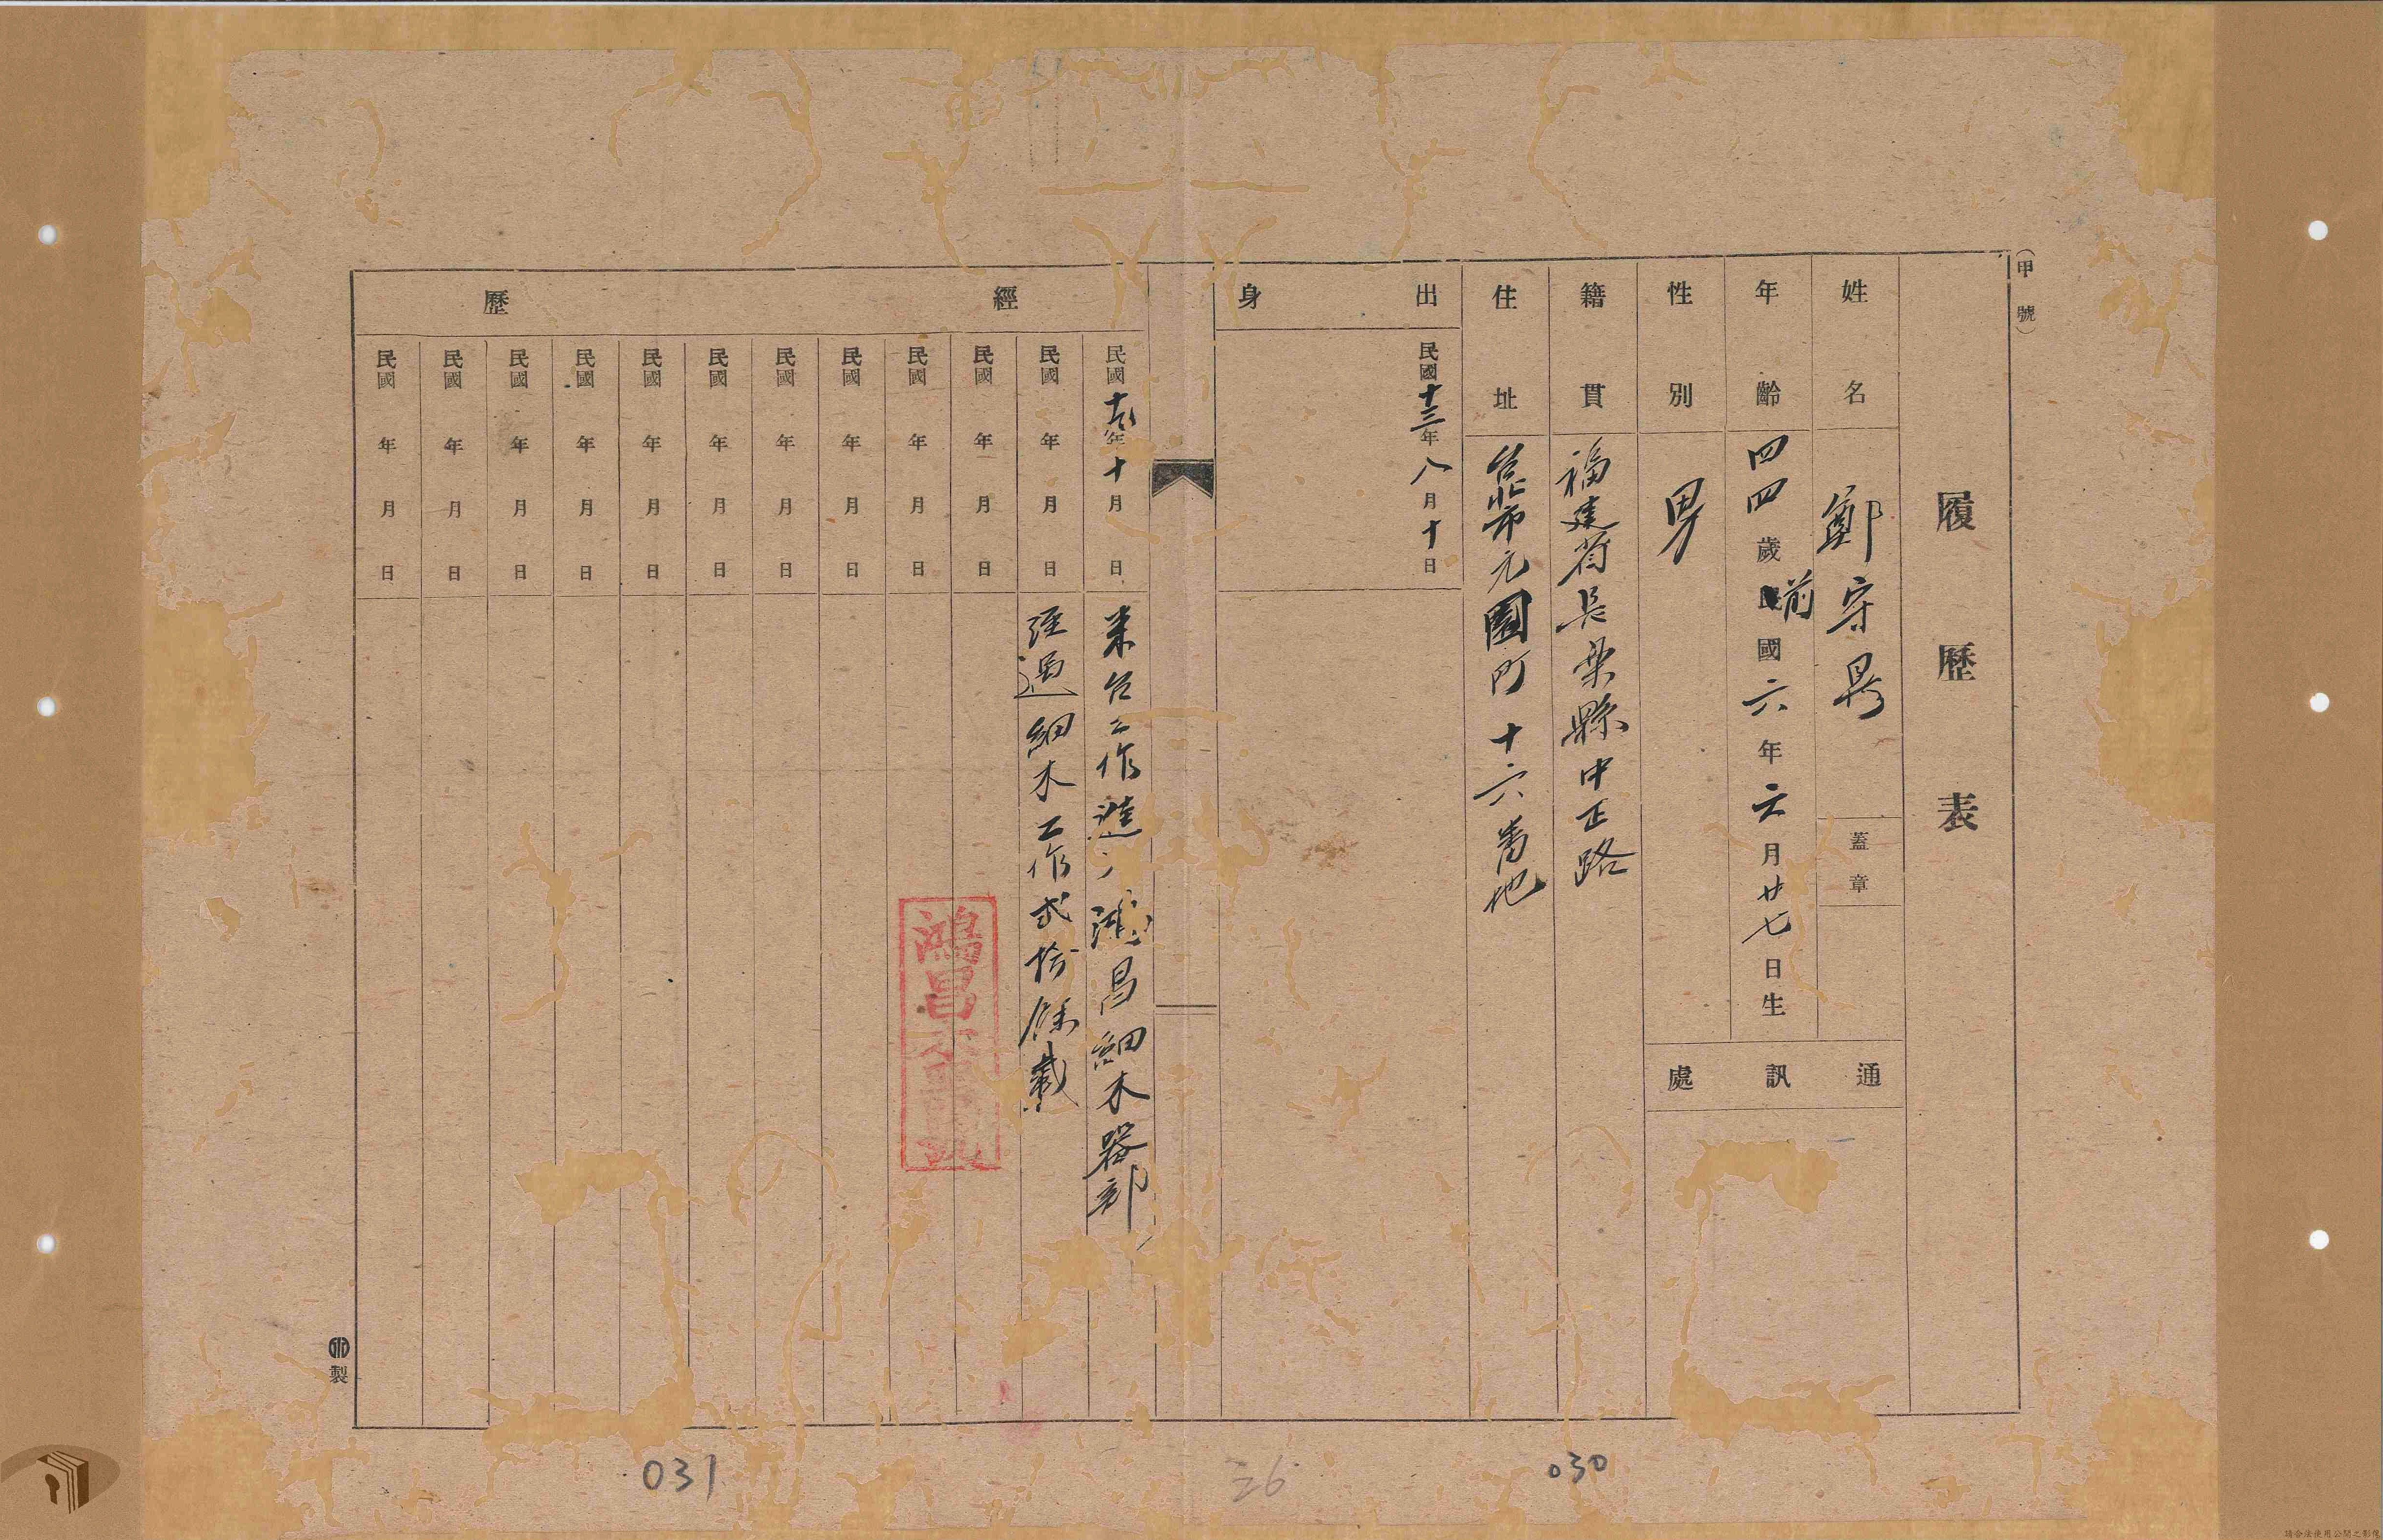 (甲號)
履歷表
姓名 鄭守
蓋章
年齡 四四歲前國六年六月廿七日生
性別 男
通訊處
籍貫 福建省長樂縣中正路
住址 台北市元園町十六番地
出身
民國十三年八月十日
經歷
民國年十月日 來台工作進入鴻昌細木器部
民國年月日 經過細木工作貳拾餘載
民國年月日
民國年月日
民國年月日
民國年月日
民國年月日
民國年月日
民國年月日
民國年月日
民國年月日
民國年月日
鴻昌
製
030
26
031
請合法使用公開之影像